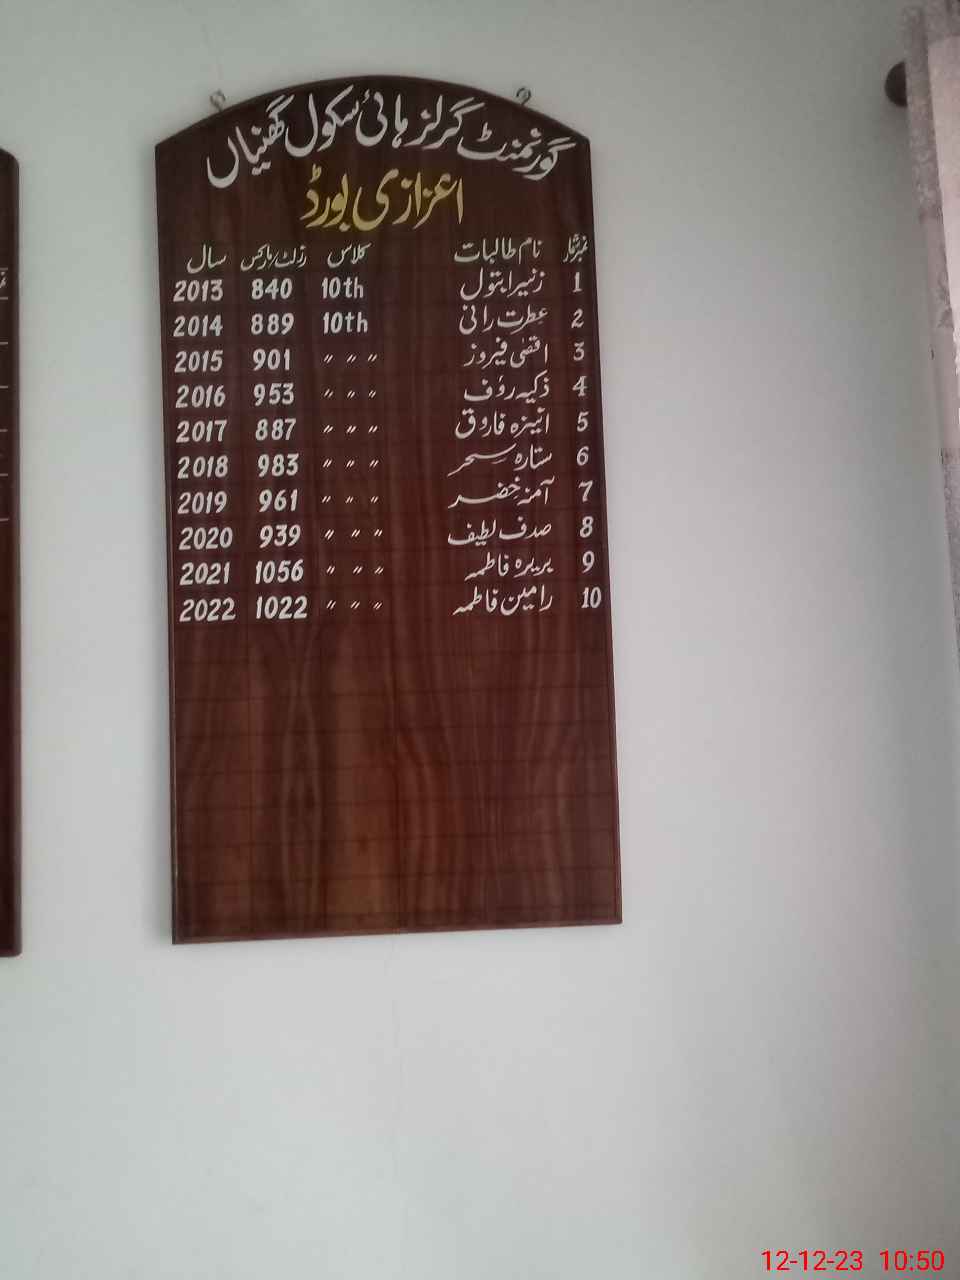 گورنمنٹ گرلز ہائی سکول گھنیاں
اعزازی بورڈ
نمبرشمار نام طالبات کلاس رزلٹ/مارکس سال
1 زنیرا بتول 10th 840 2013
2 عطرت رانی 10th 889 2014
3 اقصٰی فیروز 〃 〃 〃 901 2015
4 ذکیہ رؤف 〃 〃 〃 953 2016
5 انیزہ فاروق 〃 〃 〃 887 2017
6 ستارہ سحر 〃 〃 〃 983 2018
7 آمنہ خضر 〃 〃 〃 961 2019
8 صدف لطیف 〃 〃 〃 939 2020
9 بریرہ فاطمہ 〃 〃 〃 1056 2021
10 رامین فاطمہ 〃 〃 〃 1022 2022
12-12-23 10:50